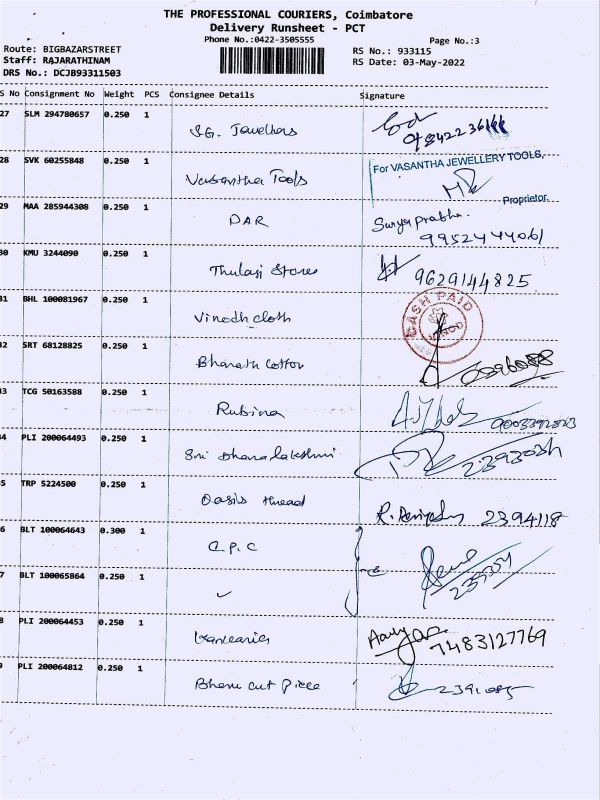 THE PROFESSIONAL COURIERS, Coimbatore
Delivery Runsheet - PCT
Phone No.:0422-3505555 Page No.:3
Route: BIGBAZARSTREET RS No.: 933115
Staff: RAJARATHINAM RS Date: 03-May-2022
DRS No.: DCJB93311503
S No Consignment No Weight PCS Consignee Details Signature
27 SLM 294780657 0.250 1 S.G. Jewellers
28 SVK 60255848 0.250 1 Vasantha Tools For VASANTHA JEWELLERY TOOLS,
Proprietor
29 MAA 285944308 0.250 1 DAR Suryaprabha.
9952444061
30 KMU 3244090 0.250 1 Thulasi Stores 9629144825
31 BHL 100081967 0.250 1 Vinodh cloth CASH PAID
32 SRT 68128825 0.250 1 Bharath Cotton
33 TCG 50163588 0.250 1 Rubina
34 PLI 200064493 0.250 1 Sri Dhanalakshmi
35 TRP 5224500 0.250 1 Oasis thread 2394118
6 BLT 100064643 0.300 1 C.P.C
7 BLT 100065864 0.250 1
8 PLI 200064453 0.250 1 7483127769
9 PLI 200064812 0.250 1 Bhanu cut piece